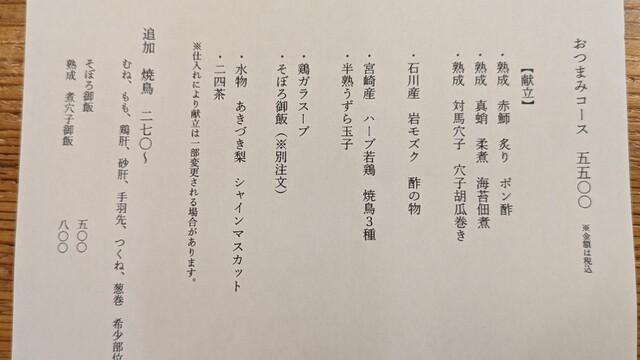 おつまみコース　五五〇〇　※金額は税込
【献立】
・熟成　赤鯥　炙り　ポン酢
・熟成　真蛸　柔煮　海苔佃煮
・熟成　対馬穴子　穴子胡瓜巻き
・石川産　岩モズク　酢の物
・宮崎産　ハーブ若鶏　焼鳥３種
・半熟うずら玉子
・鶏ガラスープ
・そぼろ御飯（※別注文）
・水物　あきづき梨　シャインマスカット
・二四茶
※仕入れにより献立は一部変更される場合があります。
追加　焼鳥　二七〇〜
むね、もも、鶏肝、砂肝、手羽先、つくね、葱巻　希少部位
そぼろ御飯　五〇〇
熟成　煮穴子御飯　八〇〇